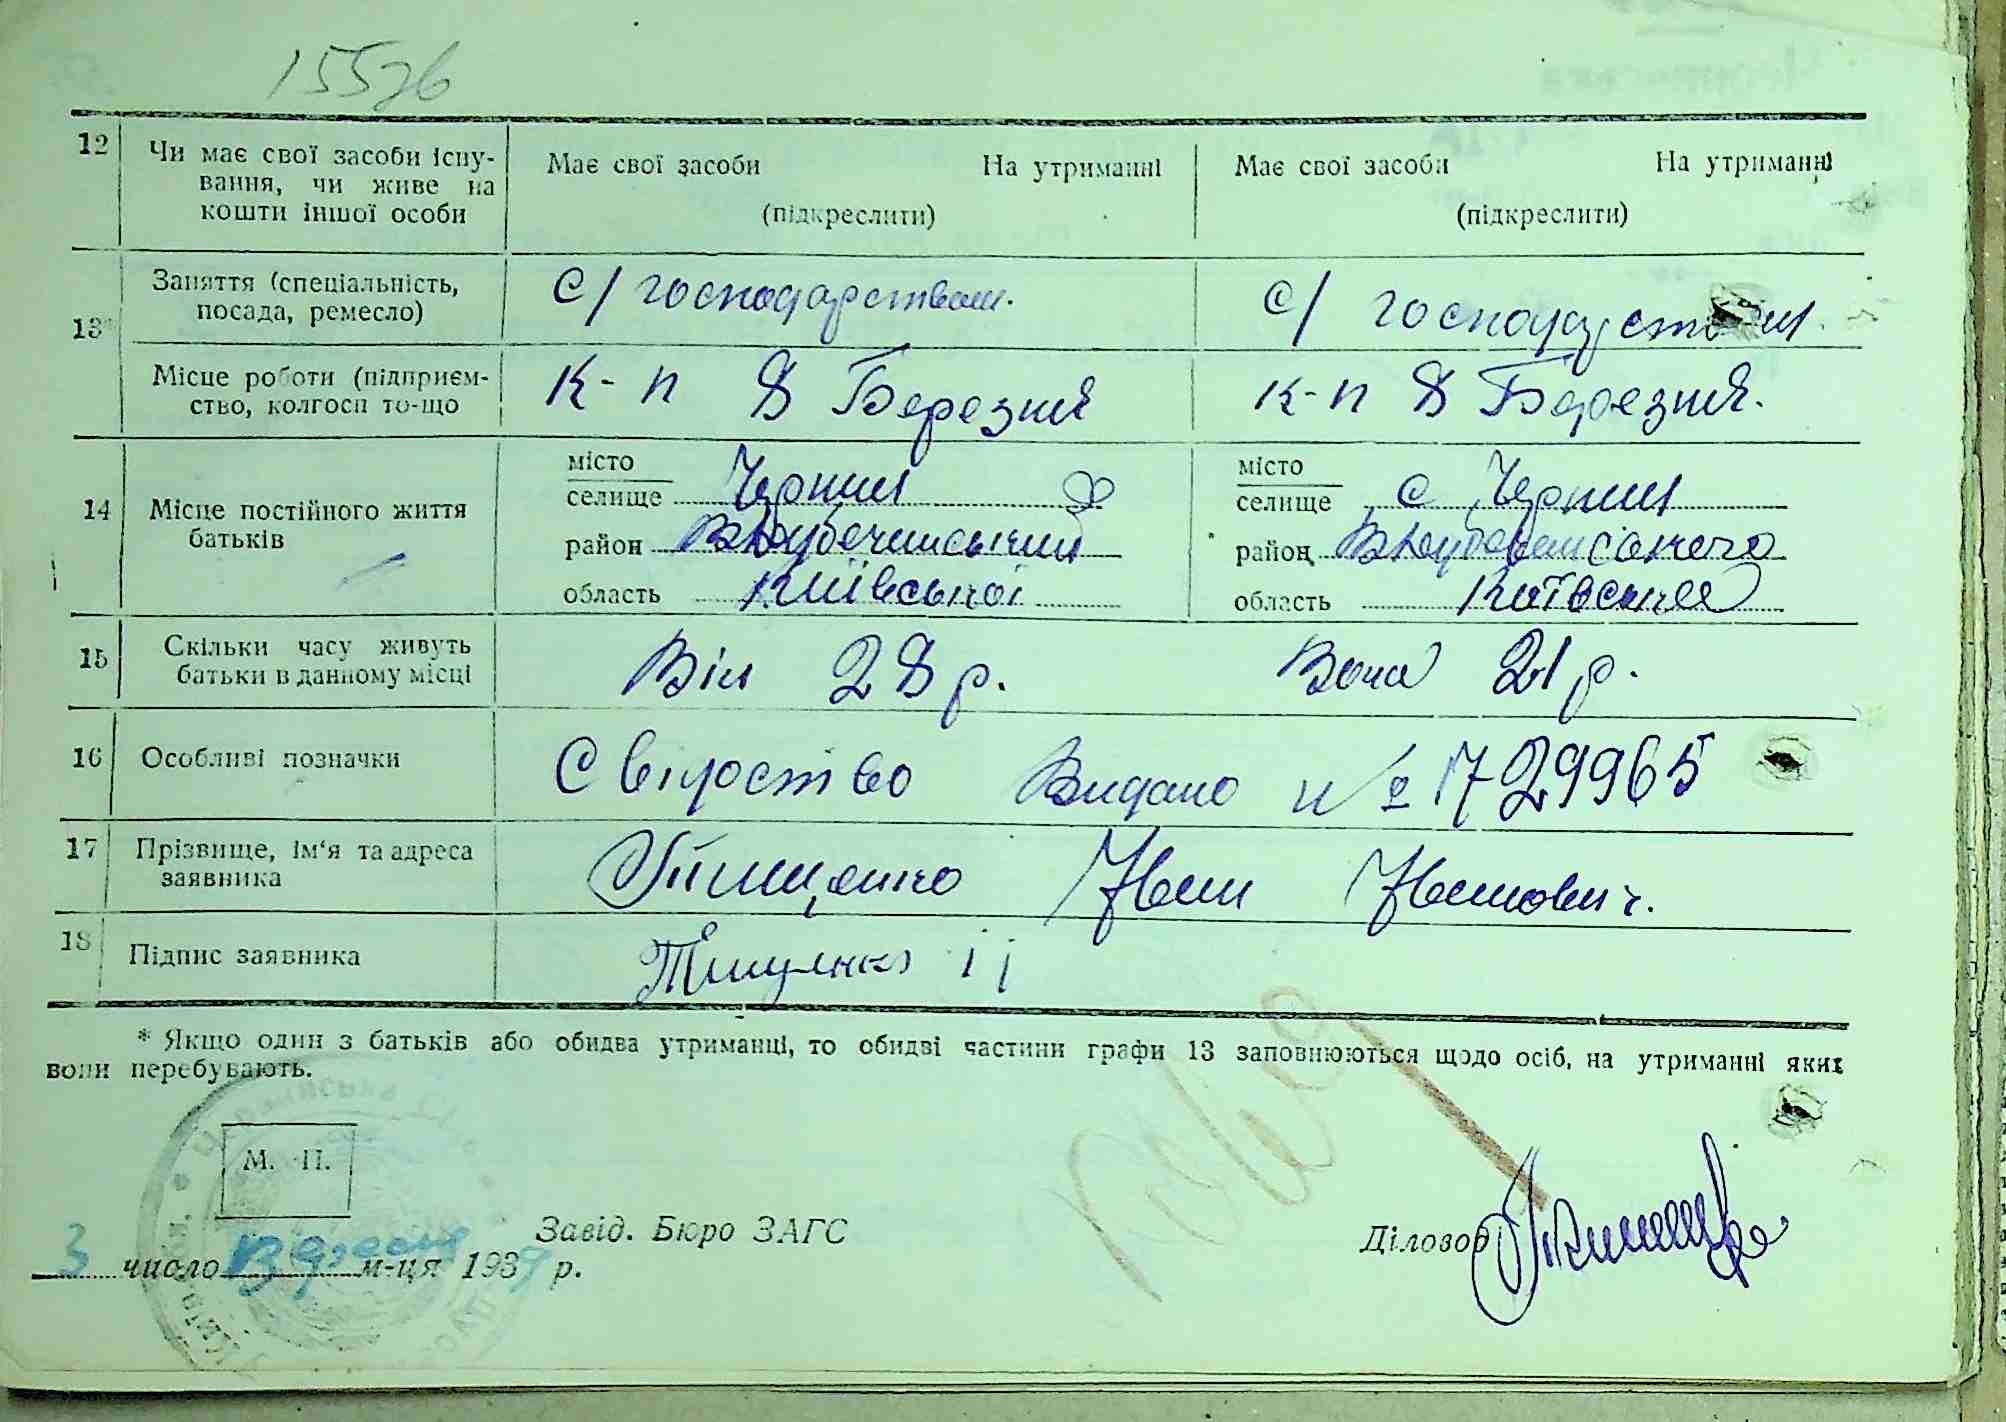 15526
12 Чи має свої засоби існу- Має свої засоби На утриманні Має свої засоби На утриманні
вання, чи живе на
кошти іншої особи (підкреслити) (підкреслити)
Заняття (спеціальність, с/ господарством. с/ господарством.
13* посада, ремесло)
Місце роботи (підприєм- к-п 8 Березня к-п 8 Березня.
ство, колгосп то-що
місто місто
14 Місце постійного життя селище Чернин селище с Чернин
батьків район район
область Київської область Київська
15 Скільки часу живуть Він 28 р. Вона 21 р.
батьки в данному місці
16 Особливі позначки Свідоство Видано № 1729965
17 Прізвище, ім'я та адреса Тищенко Иван Иванович.
заявника
18 Підпис заявника Тищенко іі
* Якщо один з батьків або обидва утриманці, то обидві частини графи 13 заповнюються щодо осіб, на утриманні яких
вони перебувають.
М. П.
Завід. Бюро ЗАГС Діловод
3 число Вересня м-ця 1939 р.